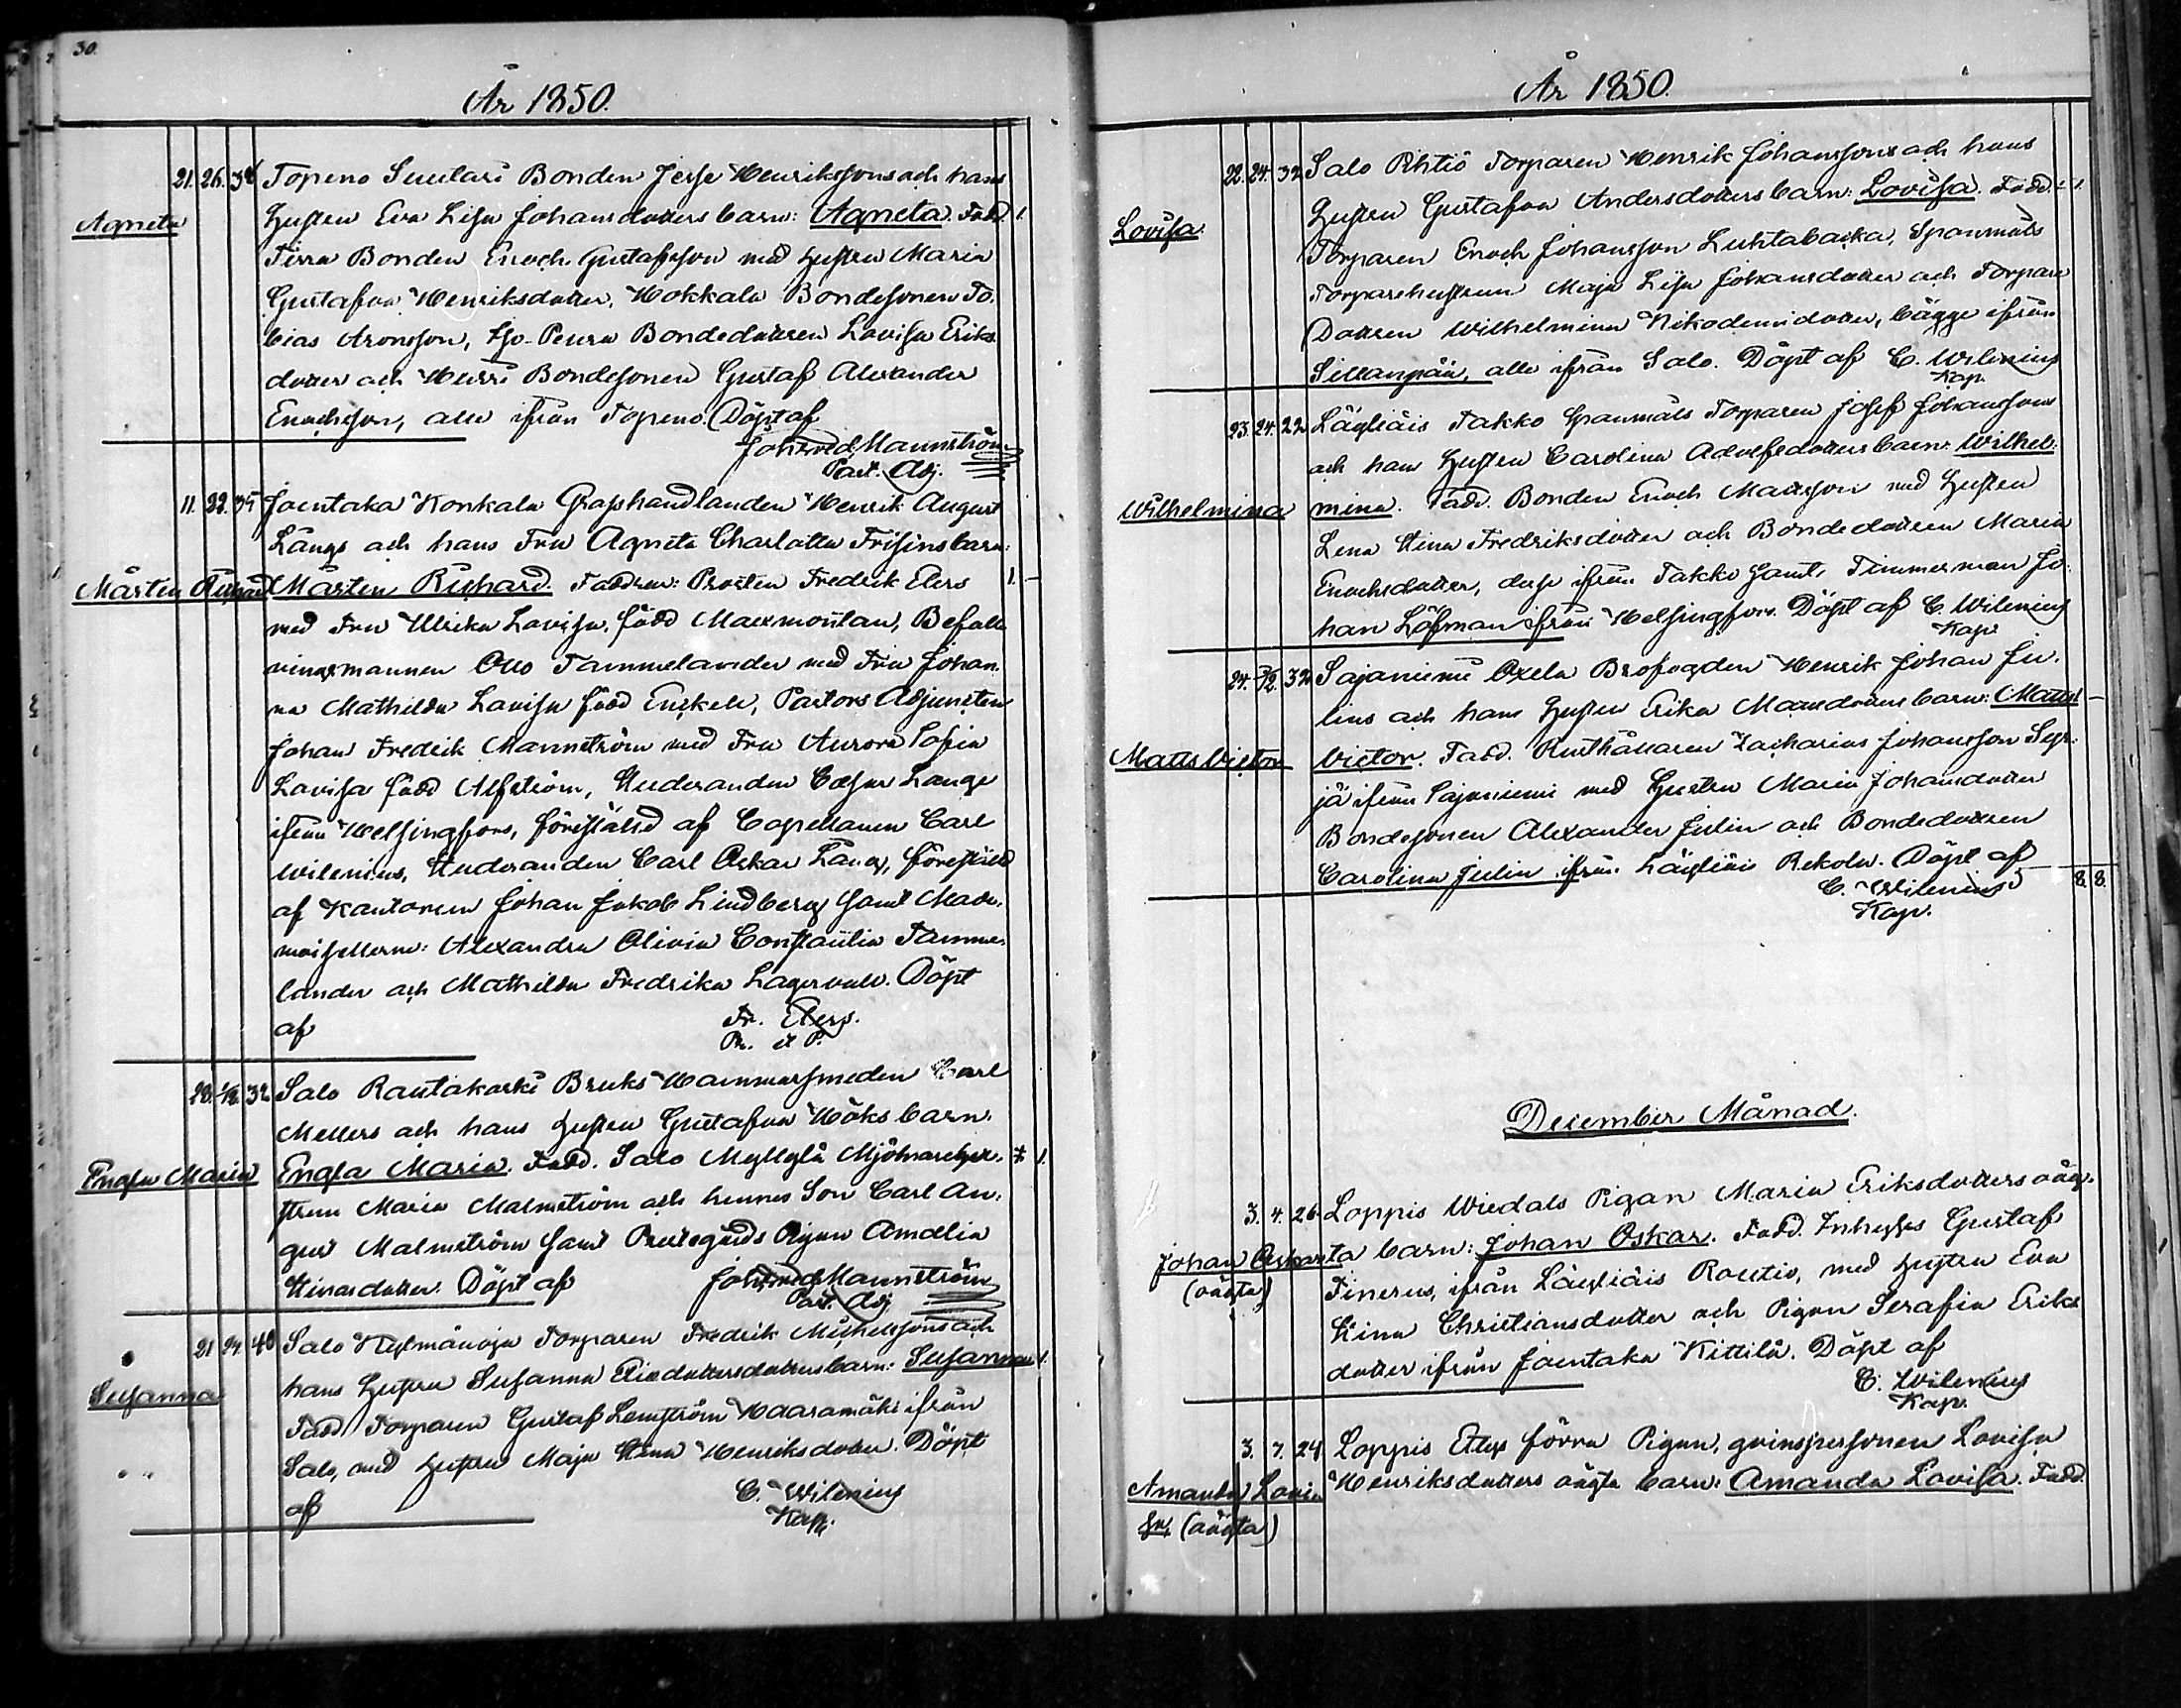 30.
År 1850.
21. 26. 34 Topeno Suutari Bonden Jesse Henrikssons och hans
Agneta
Hustru Eva Lisa Johansdotters barn: Agneta. Fadd. 1.
Tirra Bonden Enoch Gustafsson med Hustru Maria
Gustafva Henriksdotter, Hokkala Bondesonen To-
bias Aronsson, Iso-Peura Bondedottren Lovisa Eriks
dotter och Heisri Bondesonen Gustaf Alexander
Enochsson, alla ifrån Topeno. Döpt af
Joh Fred Mannström
Past. Adj.
11. 22. 35 Joentaka Konkala Gropshandlanden Henrik August
Långs och hans Fru Agneta Charlotta Frisins barn:
Mårten Richard Mårten Richard. Faddrar: Prosten Fredrik Elers 1. –
med Fru Ulrika Lovisa, född Maexmontan, Befall-
ningsmannen Otto Tammelander med Fru Johan-
na Mathilda Lovisa född Enckell, Pastors Adjuncten
Johan Fredrik Mannström med Fru Aurora Sofia
Lovisa född Alfström, Studeranden Edvin Lange
ifrån Helsingfors, föreställd af Capellanen Carl
Wilenius, Studeranden Carl Oskar Lång, föreställd
af Kantoren Johan Jakob Lindberg samt Made-
moisellerne: Alexandra Olivia Constantia Tamme-
lander och Mathilda Fredrika Lagervall. Döpt
af Fr. Elers.
Pr. et P.
28. 1/12. 32 Salo Rautakoski Bruks Hammarsmeden Carl
Mellers och hans Hustru Gustafva Höks barn:
Engla Maria Engla Maria. Fadd. Salo Myllylä Mjölnarehu-
strun Maria Malmström och hennes Son Carl Au-
gust Malmström samt Prestegårds Pigan Amalia
Stinasdotter. Döpt af Joh Fred Mannström
Past. Adj.
21 24. 40 Salo Torparen Fredrik Michelssons och
hans Hustru Susanna barn: Susanna 1.
Susanna
Fadd Torparen Gustaf Lemström Haaramäki ifrån
Salo, med Hustru Maja Stina Henriksdotter. Döpt
af C. Wilenius
Kap.
År 1850.
22. 24. 32 Salo Pihtiö Torparen Henrik Johanssons och hans
Hustru Gustafva Andersdotters barn: Lovisa. Fadd. – 1.
Lovisa.
Torparen Enoch Johansson Luhtabacka, Spanmåls
Torparehustrun Maja Lisa Johansdotter och Torpare
Dottren Wilhelmina Nikodemidotter, bägge ifrån
Sillanpää, alla ifrån Salo. Döpt af C. Wilenius
Kap.
23. 24. 22 Läyliäis Takko Spanmåls Torparen Josef Johanssons
och hans Hustru Carolina Adolfsdotters barn: Wilhel-
Wilhelmina mina. Fadd. Bonden Enoch Mattsson med Hustru
Lena Stina Fredriksdotter och Bondedottren Maria
Enochsdotter, desse ifrån Takko samt Timmerman Jo-
han Löfman ifrån Helsingfors. Döpt af C. Wilenius
Kap.
24. 1/12. 32 Sajaniemi Oxela Brofogden Henrik Johan Ju-
lins och hans Hustru Erika Mattsdotters barn: Matts 1 –
Matts Victor Victor. Fadd. Rusthållaren Zacharias Johansson Sep-
jä ifrån Sajaniemi med Hustru Maria Johansdotter
Bondesonen Alexander Julin och Bondedottren
Carolina Julin ifrån Läyliäis Rekola. Döpt af
C. Wilenius 8. 8.
Kap.
December Månad.
3. 4. 26. Loppis Wiedals Pigan Maria Eriksdotters oäg-
Johan Oskar ta barn: Johan Oskar. Fadd. Inhyses Gustaf
(oägta) Finerus, ifrån Läyliäis Routio, med Hustru Eva
Stina Christiansdotter och Pigan Serafia Eriks
dotter ifrån Joentaka Kittilä. Döpt af
C. Wilenius
Kap.
3. 7. 24 Loppis förra Pigan, qvinspersonen Lovisa
Amanda Lovi- Henriksdotters oägta barn: Amanda Lovisa. Fadd.
sa, (oägta)